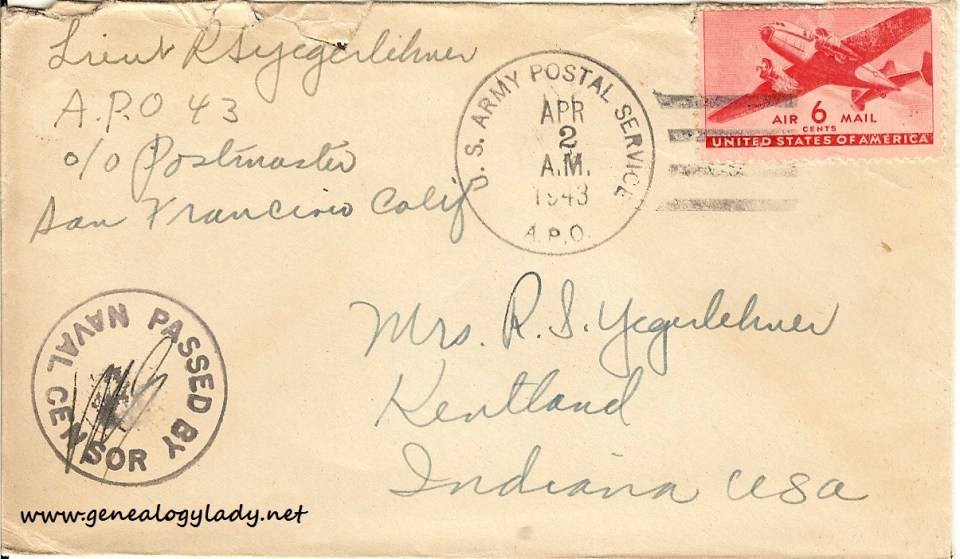 Lieut R S Yegerlehner
A.P.O 43
c/o Postmaster
San Francisco Calif
U. S. ARMY POSTAL SERVICE
APR
2
A.M.
1943
A.P.O.
AIR 6 MAIL
CENTS
UNITED STATES OF AMERICA
Mrs. R. S. Yegerlehner
Kentland
Indiana USA
PASSED BY
NAVAL CENSOR
www.genealogylady.net